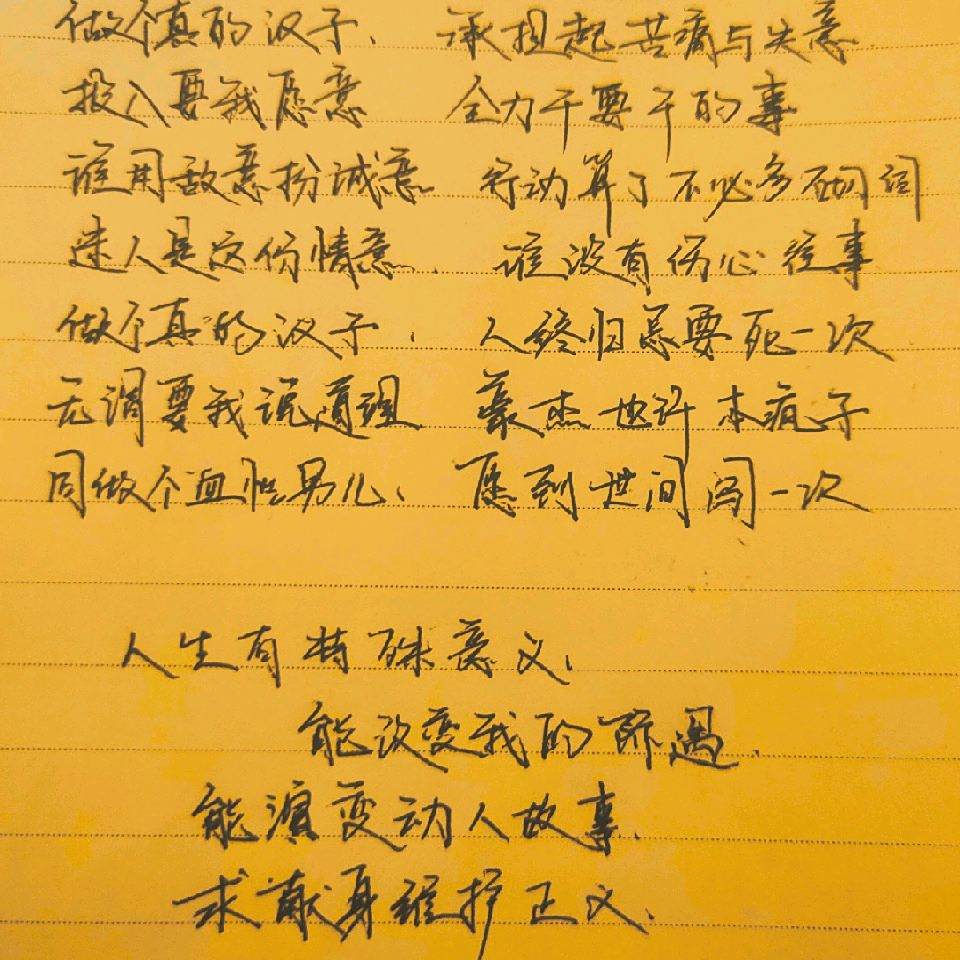 做个真的汉子、 承担起苦痛与失意
投入要我愿意 全力干要干的事
谁用敌意扮诚意 行动算了不必多砌词
迷人是这份情意、 谁没有伤心往事
做个真的汉子、 人终归总要死一次
无谓要我说道理 豪杰也许本疯子
同做个血性男儿、 愿到世间闯一次
人生有特殊意义、
能改变我的际遇、
能演变动人故事、
求献身维护正义、